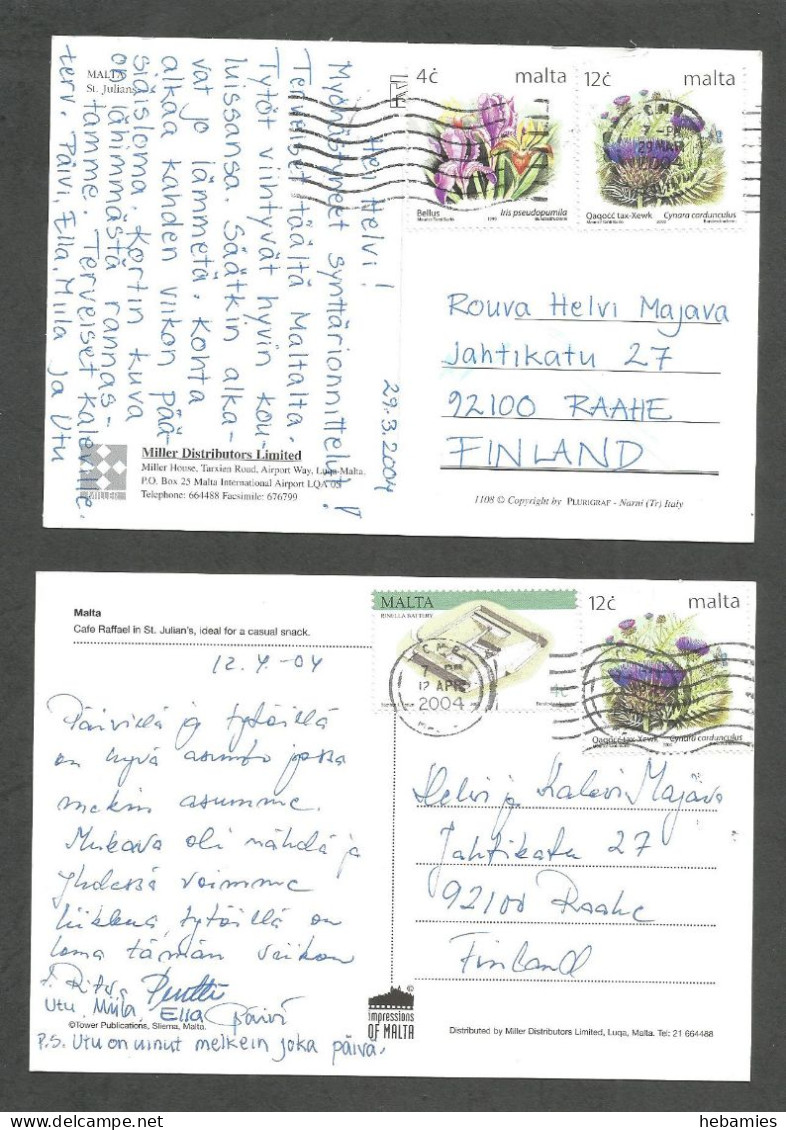 MALTA
St. Julians
29.3.2004
Hei Helvi!
Myöhästyneet synttärionnittelut!
Terveiset täältä Maltalta.
Tytöt viihtyvät hyvin kou-
luissansa. Säätkin alka-
vat jo lämmetä. Kohta
alkaa kahden viikon pää-
siäisloma. Kortin kuva
on lähimmästä rannas-
tamme. Terveiset Kaleville.
terv. Päivi, Ella, Miila ja Utu
4ċ malta
Bellus Iris pseudopumila
12ċ malta
7-PM
29 MAR
Qaqoċċ tax-Xewk Cynara cardunculus
Rouva Helvi Majava
Jahtikatu 27
92100 RAAHE
FINLAND
Miller Distributors Limited
Miller House, Tarxien Road, Airport Way, Luqa-Malta.
P.O. Box 25 Malta International Airport LQA 05
Telephone: 664488 Facsimile: 676799
MILLER
1108 © Copyright by PLURIGRAF - Narni (Tr) Italy
Malta
Cafe Raffael in St. Julian's, ideal for a casual snack.
12.4.-04
Päivillä ja tytöillä
on hyvä asunto jossa
mekin asumme.
Mukava oli nähdä ja
yhdessä voimme
liikkua, tytöillä on
loma tämän viikon
T. Ritva Pentti
Utu, Miila, Ella Päivi
©Tower Publications, Sliema, Malta.
P.S. Utu on uinut melkein joka päivä.
MALTA
RINELLA BATTERY
7-PM
12 APR
2004
12ċ malta
Qaqoċċ tax-Xewk Cynara cardunculus
Helvi ja Kalevi Majava
Jahtikatu 27
92100 Raahe
Finland
impressions
OF MALTA
Distributed by Miller Distributors Limited, Luqa, Malta. Tel: 21 664488
hebamies